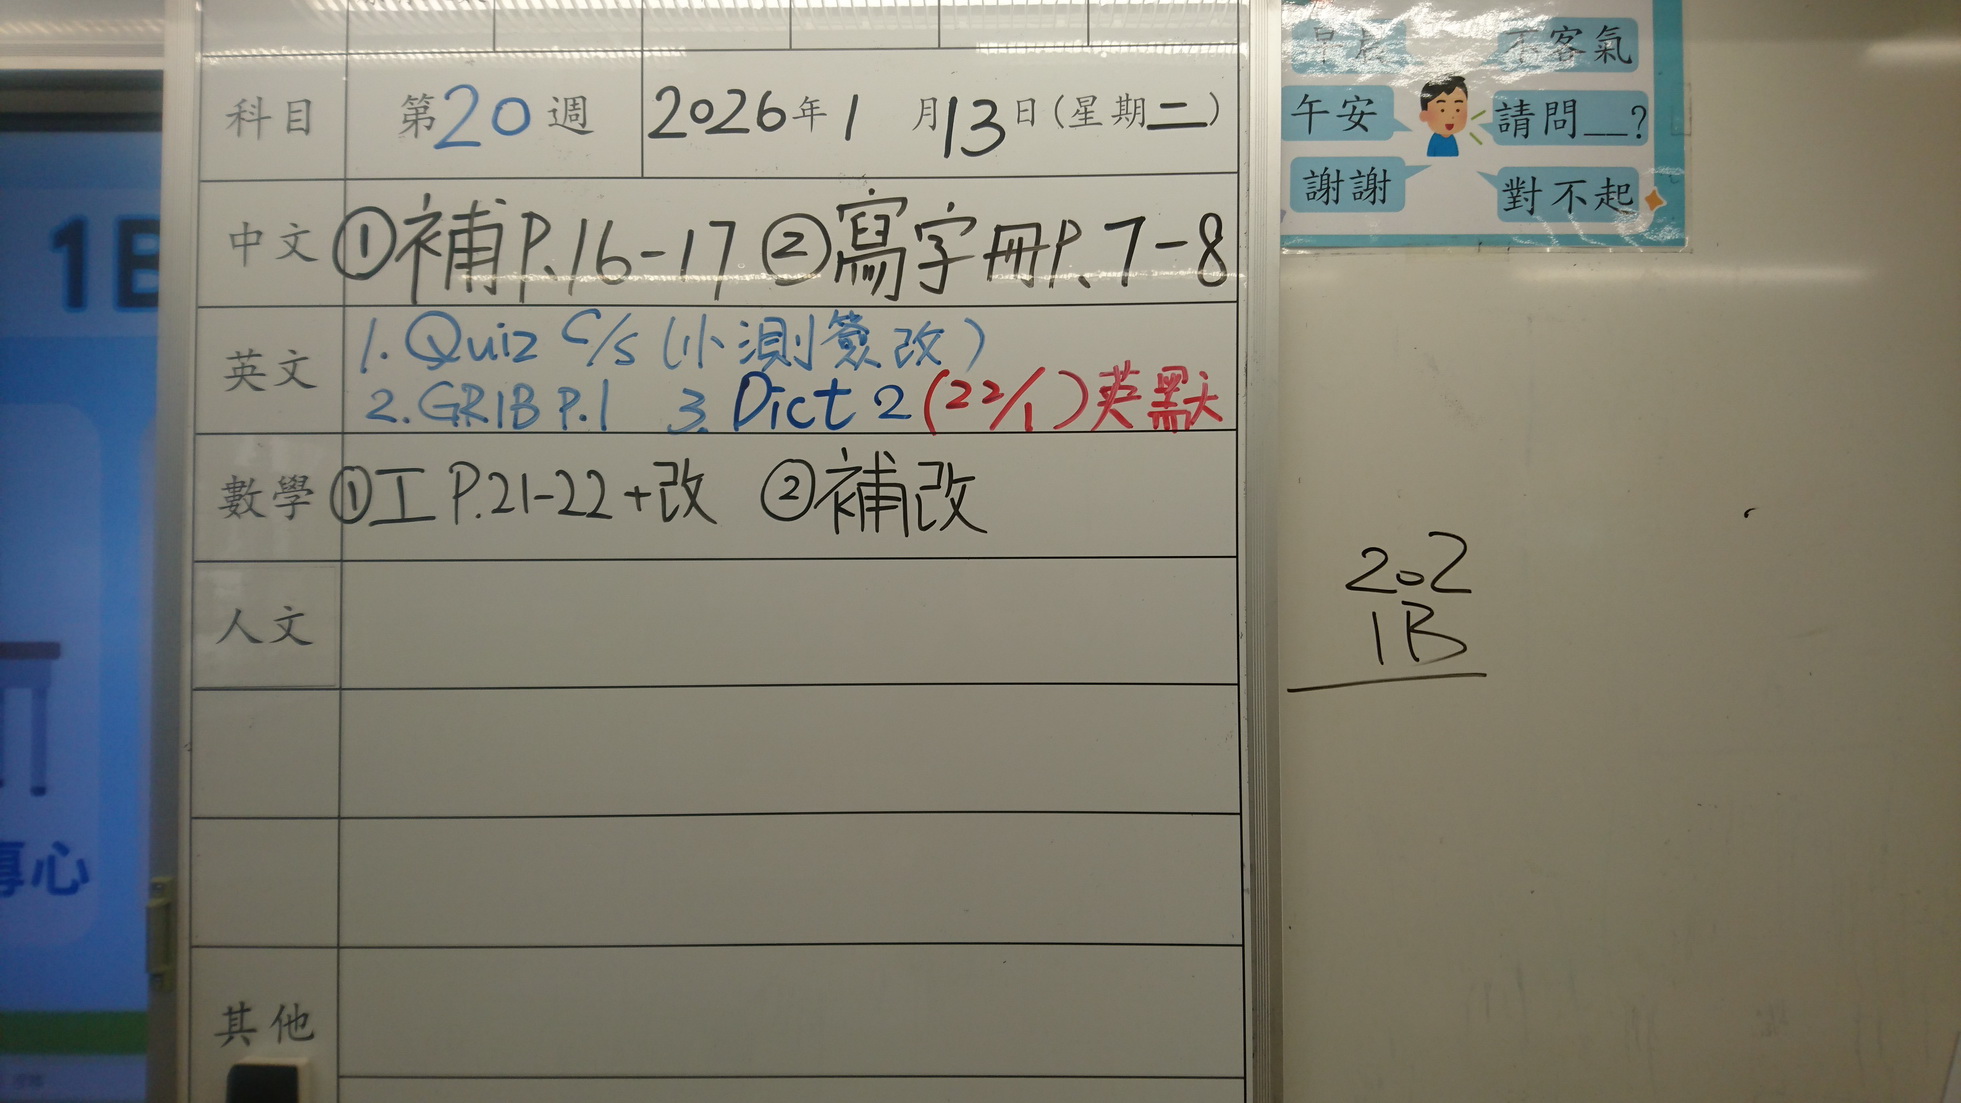 科目 第20週 2026年1月13日(星期二)
中文 ①補P.16-17 ②寫字冊P.7-8
英文 1. Quiz C/S (小測簽改)
2. GR1B P.1 3. Dict 2 (22/1) 英默
數學 ①工 P.21-22+改 ②補改
人文
其他
早晨
不客氣
午安
請問__?
謝謝
對不起
202
1B
1B
專心